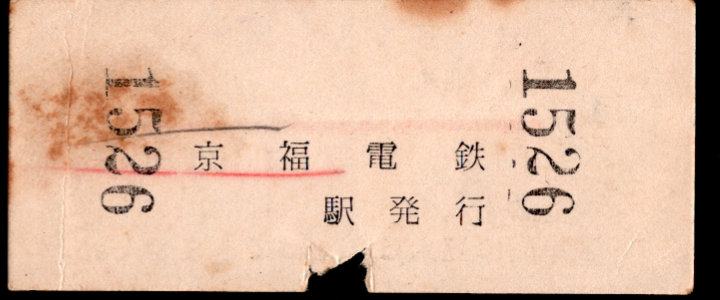 1526
京福電鉄
駅発行
1526